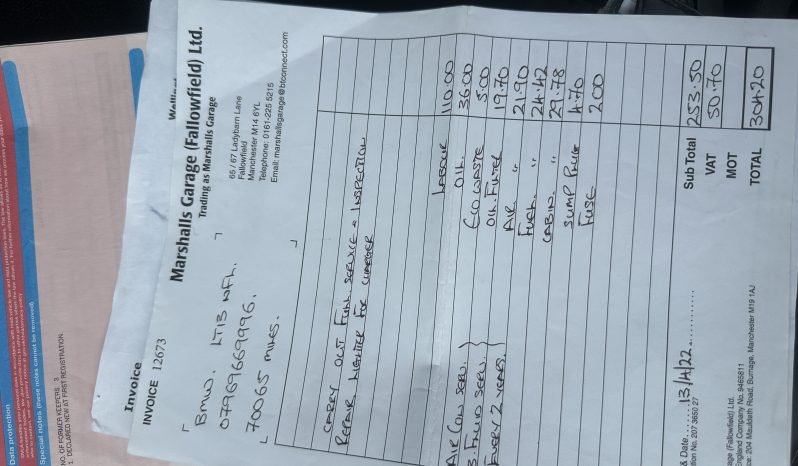 Data protection
Special notes (these notes cannot be removed)
NO. OF FORMER KEEPERS 3
1. DECLARED NEW AT FIRST REGISTRATION
Invoice
INVOICE 12673
Marshalls Garage (Fallowfield) Ltd.
Trading as Marshalls Garage
65 / 67 Ladybarn Lane
Fallowfield
Manchester M14 6YL
Telephone: 0161-225 5215
Email: marshallsgarage@btconnect.com
BMW. LT13 NFL.
07969669996.
70065 MILES.
CARRY OUT FULL SERVICE & INSPECTION
REPAIR LIGHTER FOR CHARGER
LABOUR 110.00
AIR CON SERV. } OIL. 36.00
B. FLUID SERV. } ECO WASTE 5.00
EVERY 2 YEARS. } OIL. FILTER 19.70
AIR " 21.90
FUEL. " 24.42
CABIN. " 29.78
SUMP PLUG 4.70
FUSE 2.00
Sub Total 253.50
& Date 13/4/22
VAT 50.70
tion No. 207 3650 27
MOT
TOTAL 304.20
age (Fallowfield) Ltd.
England Company No. 9465811
ce: 204 Mauldeth Road, Burnage, Manchester M19 1AJ